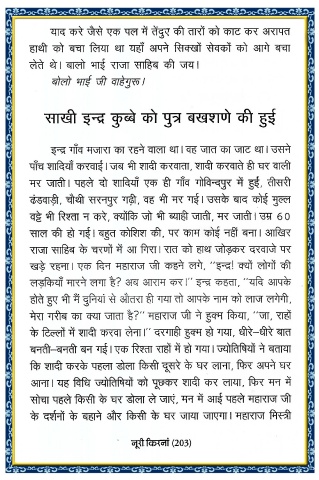 याद करे जैसे एक पल में तेंदुर की तारों को काट कर अरापत
हाथी को बचा लिया था यहाँ अपने सिक्खों सेवकों को आगे बचा
लेते थे। बालो भाई राजा साहिब की जय।
बोलो भाई जी वाहेगुरू।
साखी इन्द्र कुब्बे को पुत्र बखशणे की हुई
इन्द्र गाँव मजारा का रहने वाला था। वह जात का जाट था। उसने
पाँच शादियाँ करवाई। जब भी शादी करवाता, शादी करवाते ही घर वाली
मर जाती। पहले दो शादियाँ एक ही गाँव गोविन्दपुर में हुईं, तीसरी
ढंडवाड़ी, चौथी सरनपुर गढ़ी, वह भी मर गई। उसके बाद कोई मुल्ल
वट्टे भी रिश्ता न करे, क्योंकि जो भी ब्याही जाती, मर जाती। उम्र 60
साल की हो गई। बहुत कोशिश की, पर काम कोई नहीं बना। आखिर
राजा साहिब के चरणों में आ गिरा। रात को हाथ जोड़कर दरवाजे पर
खड़े रहना। एक दिन महाराज जी कहने लगे, "इन्द्र! क्यों लोगों की
लड़कियाँ मारने लगा है? अब आराम कर।" इन्द्र कहता, "यदि आपके
होते हुए भी मैं दुनियां से औतरा ही गया तो आपके नाम को लाज लगेगी,
मेरा गरीब का क्या जाता है?" महाराज जी ने हुक्म किया, "जा, राहों
के टिल्लों में शादी करवा लेना।" दरगाही हुक्म हो गया, धीरे-धीरे बात
बनती-बनती बन गई। एक रिश्ता राहों में हो गया। ज्योतिषियों ने बताया
कि शादी करके पहला डोला किसी दूसरे के घर लाना, फिर अपने घर
आना। यह विधि ज्योतिषियों को पूछकर शादी कर लाया, फिर मन में
सोचा पहले किसी के घर डोला ले जाएं, मन में आई पहले महाराज जी
के दर्शनों के बहाने और किसी के घर जाया जाएगा। महाराज मिस्त्री
नूरी किरनां (203)